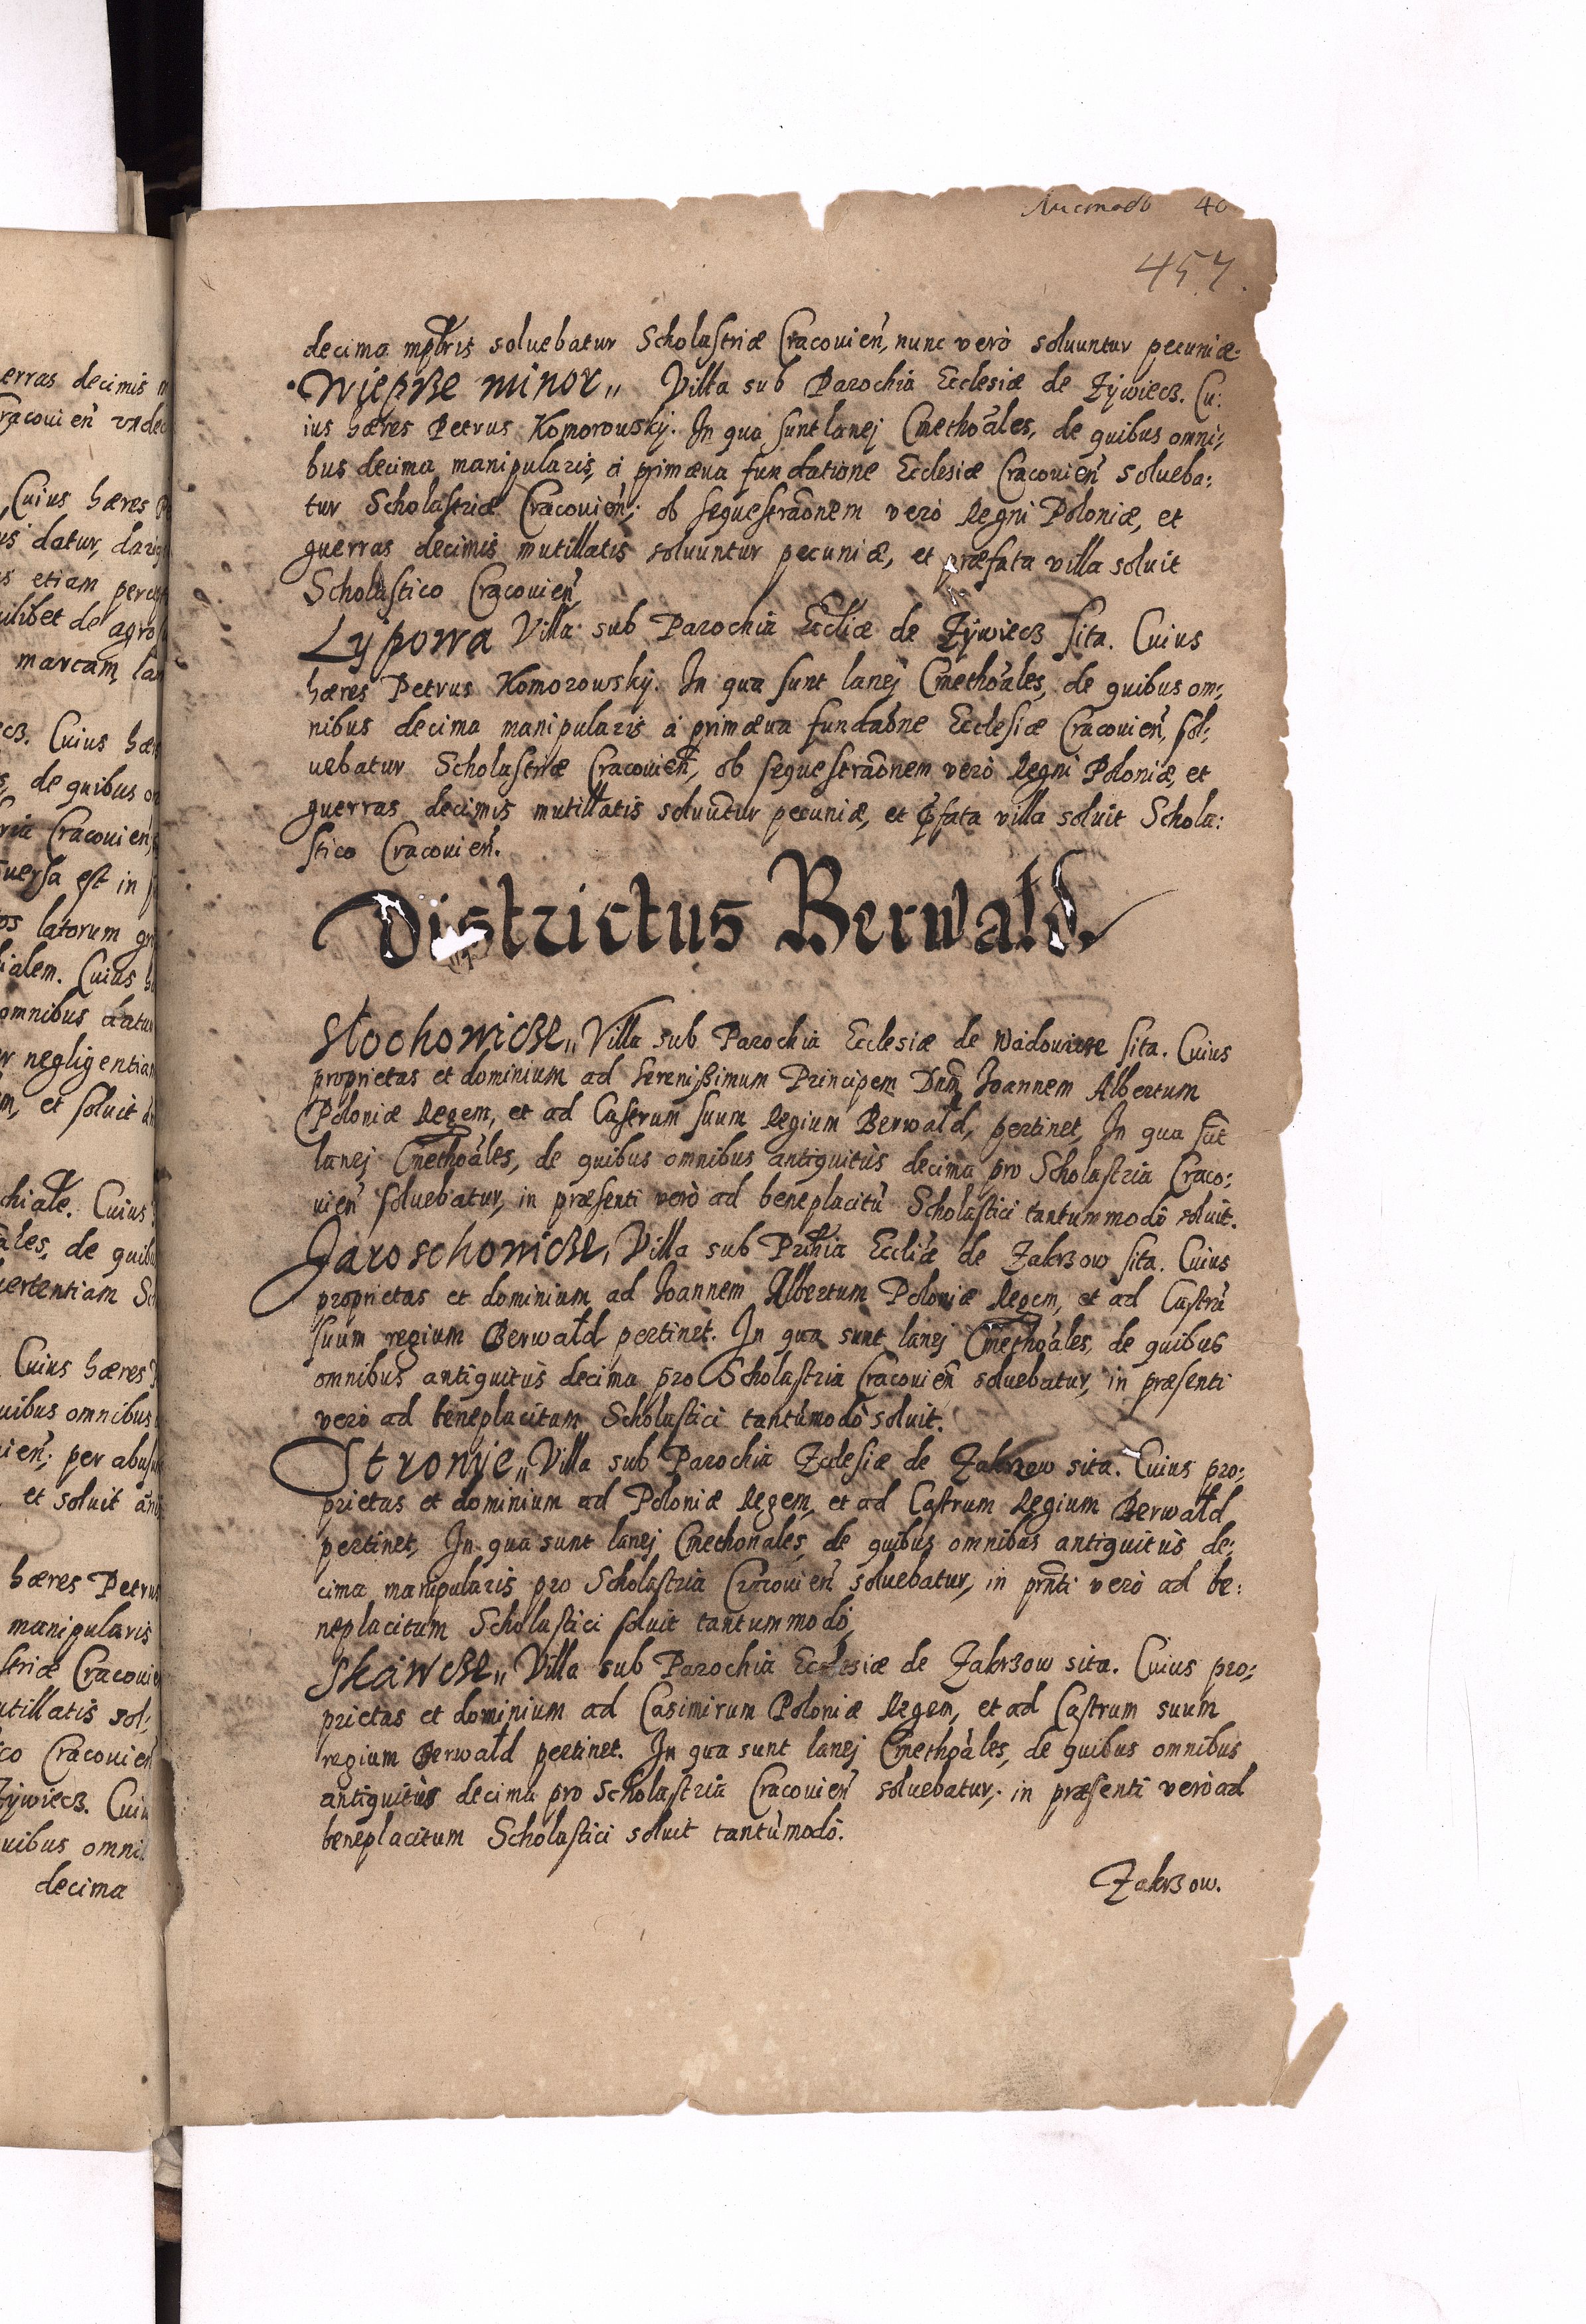 erras decimis
racouien̄ vn dec
Cuius hæres
is datur, da
s etiam perci
uilibet de agro
marcam, lan
ecz. Cuius hær
s, de quibus o
ria Cracouien̄
uersa est in
os latorum gr
ialem. Cuius h
omnibus datur
r negligentiam
m, et soluit
chiale. Cuius
ales, de quibu
ertentiam Sc
Cuius hæres
uibus omnibus
ien̄; per abusu
et soluit an̄
hæres Petrus
manipularis
striæ Cracouien
utillatis sol:
co Cracouien̄
Zÿwiecz. Cuiu
uibus omni
decima
Листовъ 40
457.
decima mplris soluebatur Scholastriæ Cracouien̄, nunc verò soluuntur pecuniæ.
Wieprze minor„ Villa sub Parochia Ecclesiæ de Zÿwiecz. Cu:
ius hæres Petrus Komorowskÿ. In qua sunt lanej Cmethōales, de quibus omni:
bus decima manipularis, à primæua fundatione Ecclesiæ Cracouien̄ solueba:
tur Scholastriæ Cracouien̄; ob sequestrāonem verò Regni Poloniæ, et
guerras decimis mutillatis soluuntur pecuniæ, et præfata villa soluit
Scholastico Cracouien̄
Lÿpowa Villa sub Parochia Eccliæ de Zÿwiecz sita. Cuius
hæres Petrus Komorowskÿ. In qua sunt lanej Cmethōales, de quibus om:
nibus decima manipularis à primæua fundāone Ecclesiæ Cracouien̄, sol:
uebatur Scholastriæ Cracouien̄, ob sequestrāonem verò Regni Poloniæ, et
guerras decimis mutillatis soluuntur pecuniæ, et p̄fata villa soluit Schola:
stico Cracouien̄.
Districtus Berwald.
Klochowicze„ Villa sub Parochia Ecclesiæ de Wadowicze sita. Cuius
proprietas et dominium ad Serenissimum Principem Dnm̄ Joannem Albertum
Poloniæ Regem, et ad Castrum suum Regium Berwald, pertinet, In qua sūt
lanej Cmethōales, de quibus omnibus antiquitùs decima pro Scholastria Craco:
uien̄ soluebatur, in præsenti verò ad beneplacitū Scholastici tantummodò soluit.
Jaroschowicze, Villa sub Prhīa Eccliæ de Zakrzow sita. Cuius
proprietas et dominium ad Joannem Albertum Poloniæ Regem, et ad Castrū
suum regium Berwald pertinet. In qua sunt lanej Cmethōales, de quibus
omnibus antiquitùs decima pro Scholastria Cracouien̄ soluebatur, in præsenti
verò ad beneplacitum Scholastici tantūmodò soluit.
Stronÿe„ Villa sub Parochia Ecclesiæ de Zakrzow sita. Cuius pro:
prietas et dominium ad Poloniæ Regem, et ad Castrum Regium Berwald
pertinet, In qua sunt lanej Cmethonales, de quibus omnibus antiquitùs de:
cima manipularis pro Scholastria Cracouien̄ soluebatur, in prn̄ti verò ad be:
neplacitum Scholastici soluit tantummodò,
Skawcze„ Villa sub Parochia Ecclesiæ de Zakrzow sita. Cuius pro:
prietas et dominium ad Casimirum Poloniæ Regem, et ad Castrum suum
regium Berwald pertinet. In qua sunt lanej Cmethōales, de quibus omnibus
antiquitùs decima pro Scholastria Cracouien̄ soluebatur, in præsenti verò ad
beneplacitum Scholastici soluit tantūmodò.
Zakrzow.